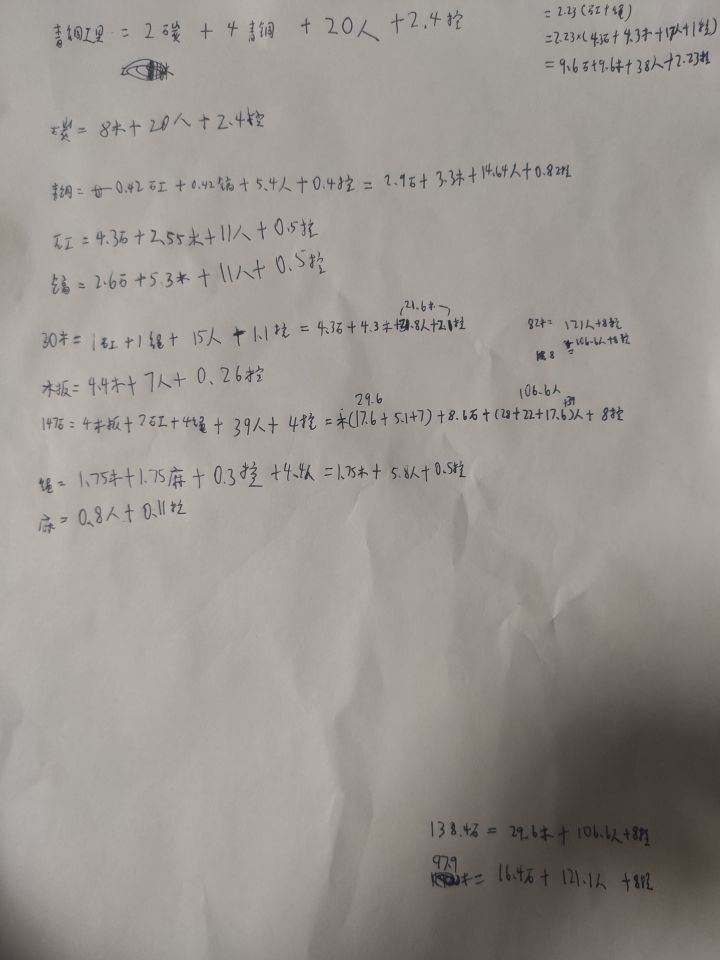 青铜工具 = 2碳 + 4青铜 + 20人 + 2.4控
= 2.23(石工+绳)
= 2.23×(4.3石+4.3木+17人+1控)
= 9.6石+9.6木+38人+2.23控
碳 = 8木+20人+2.4控
青铜 = 0.42石工+0.42镐+5.4人+0.4控 = 2.9石+3.3木+14.64人+0.82控
石工 = 4.3石+2.55木+11人+0.5控
镐 = 2.6石+5.3木+11人+0.5控
21.6木
30木 = 1石工+1绳+15人+1.1控 = 4.3石+4.3木+31.8人+2.1控
82木 = 121人+8控
106.6人+8控
木板 = 4.4木+7人+0.26控
29.6
106.6人
+39
147石 = 4木板+2石工+4绳+39人+4控 = 木(17.6+5.1+7)+8.6石+(28+22+17.6)人+8控
绳 = 1.75木+1.75麻+0.3控+4.4人 = 1.75木+5.8人+0.5控
麻 = 0.8人+0.11控
138.4石 = 29.6木+106.6人+8控
97.9
木 = 16.4石+121.1人+8控